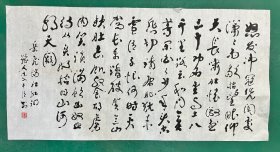 怒发冲冠凭阑处
潇潇雨歇抬望眼仰
天长啸壮怀激烈
三十功名尘与土八
千里路云和月莫等
闲白了少年头空悲
切靖康耻犹未
雪臣子恨何时灭驾
长车踏破贺兰山
缺壮志饥餐胡虏
肉笑谈渴饮匈奴
血待从头收拾旧山河
朝天阙
岳飞满江红词